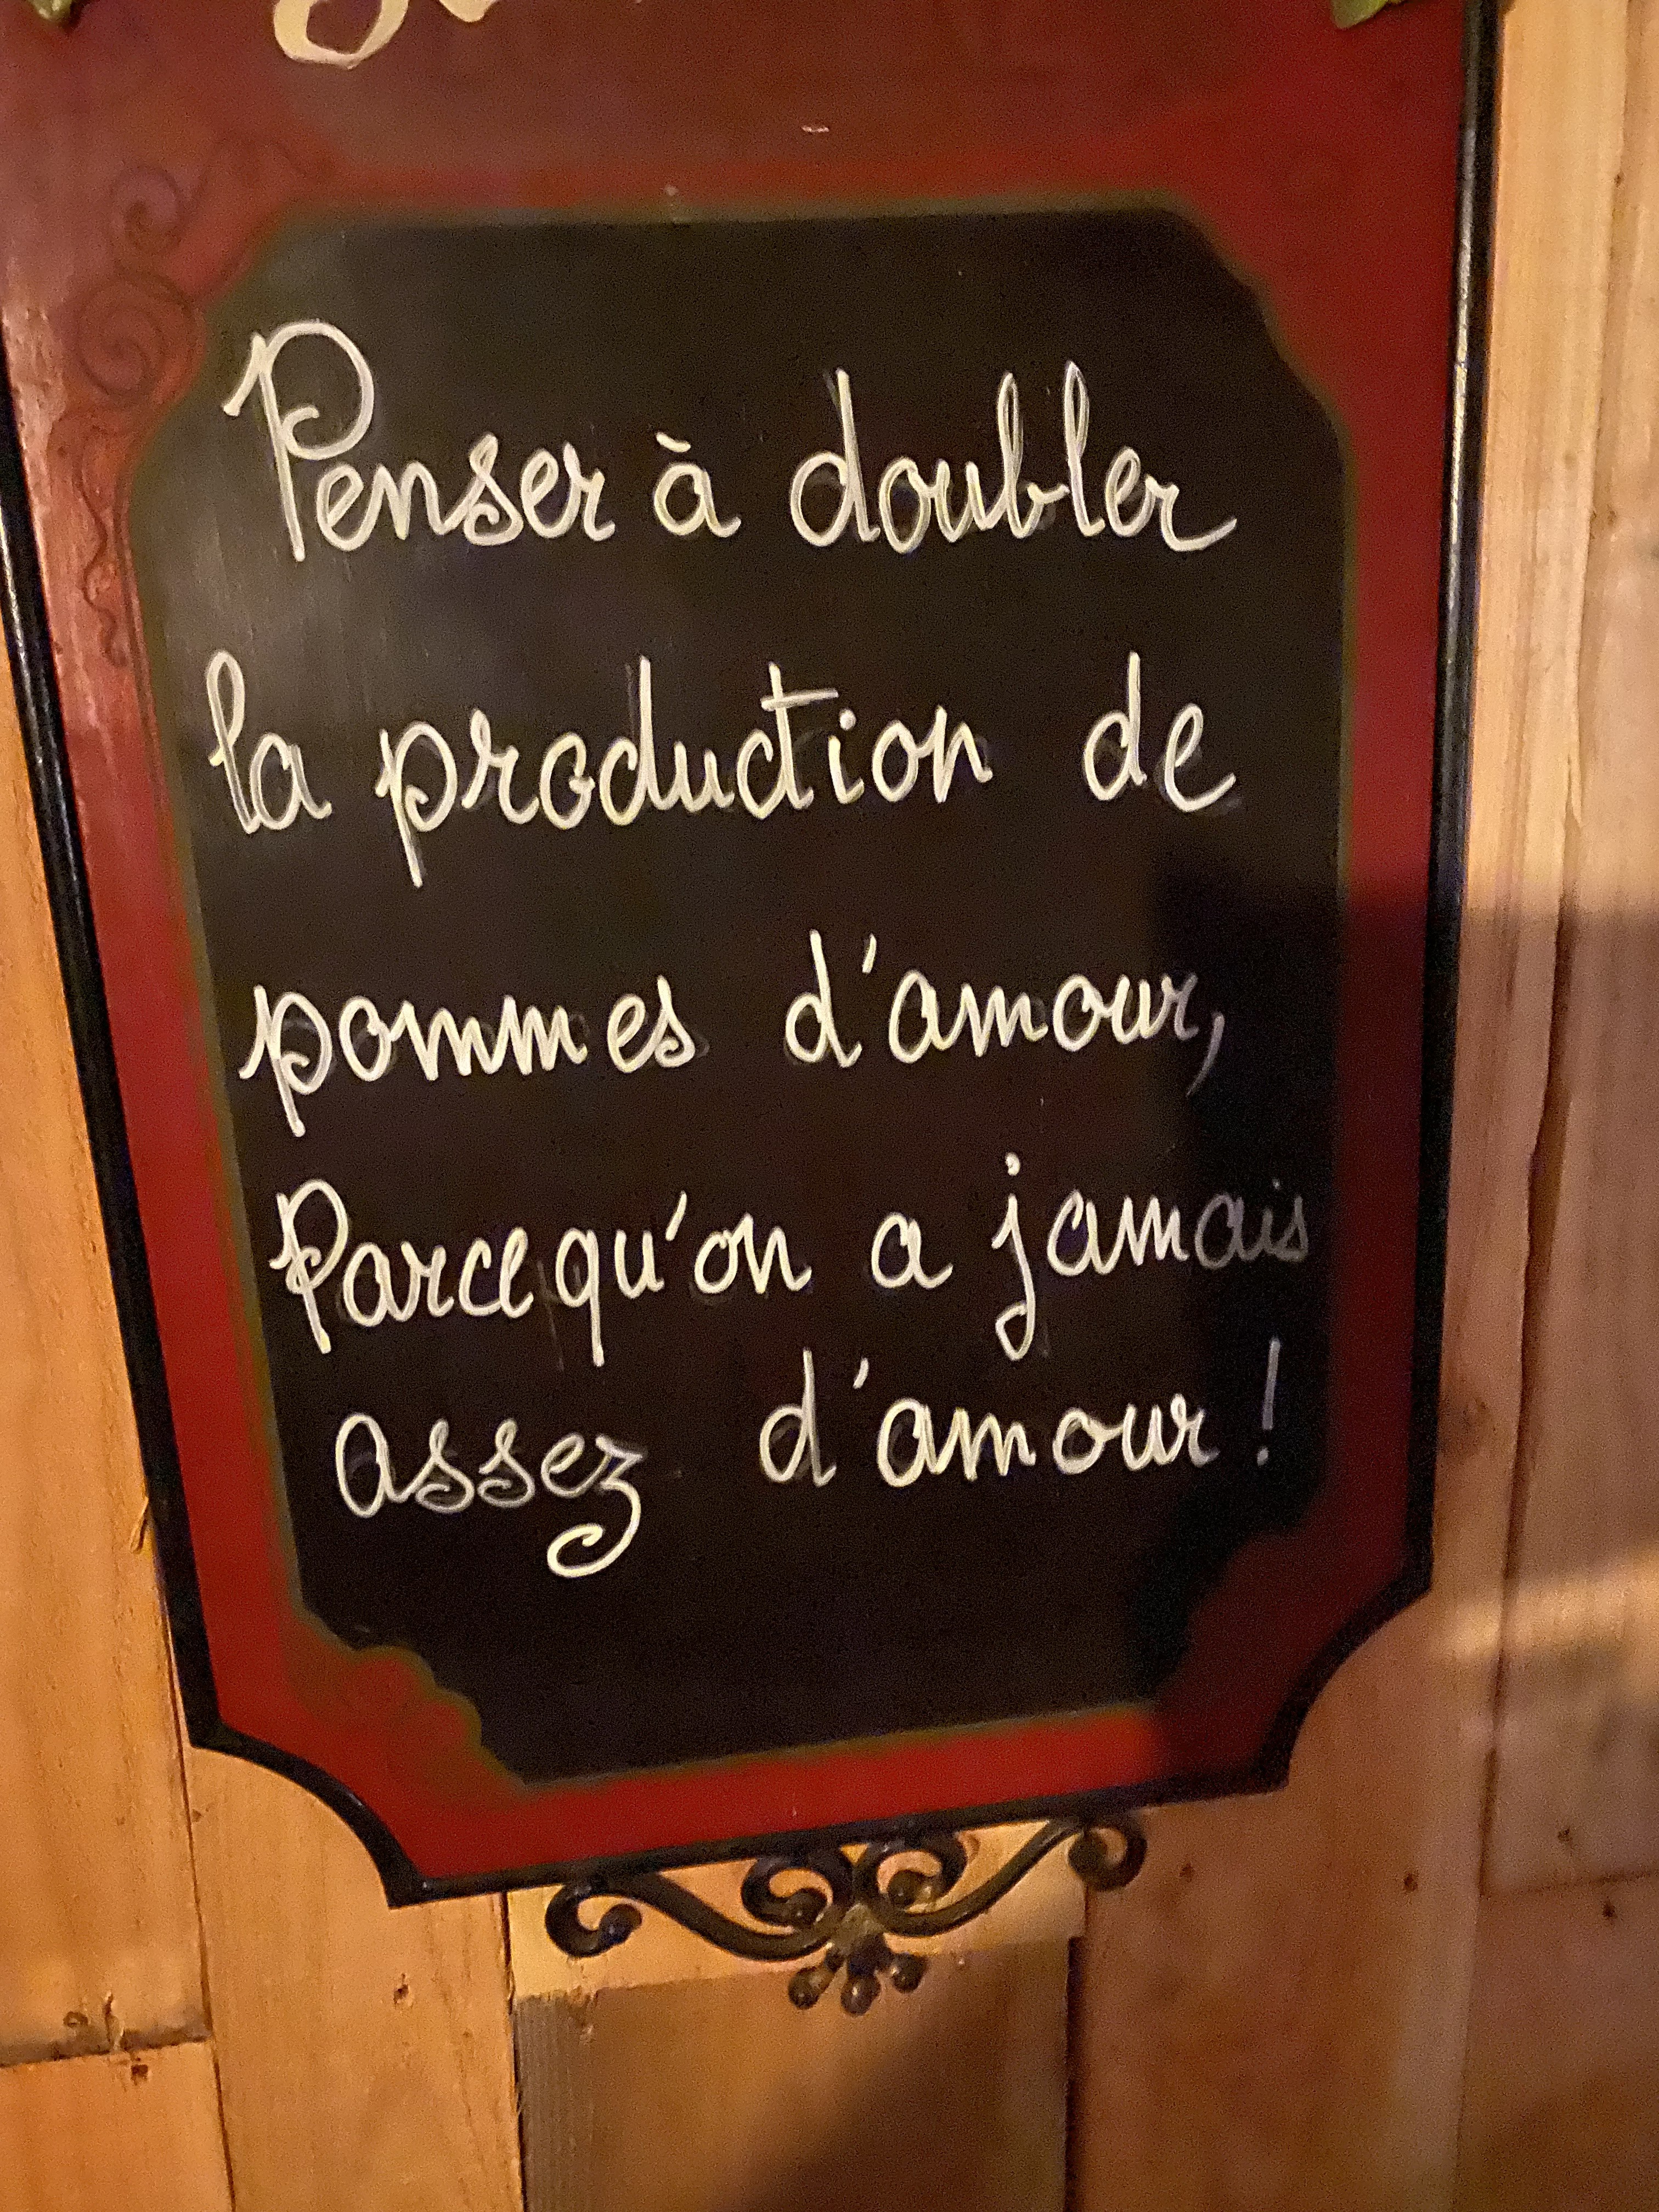 Penser à doubler
la production de
pommes d'amour,
Parcequ'on a jamais
assez d'amour !